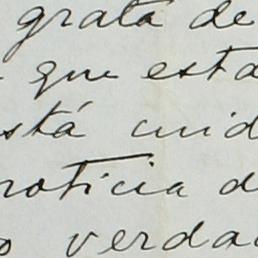 grata de
que esta
stá cuid
noticia d
o verda